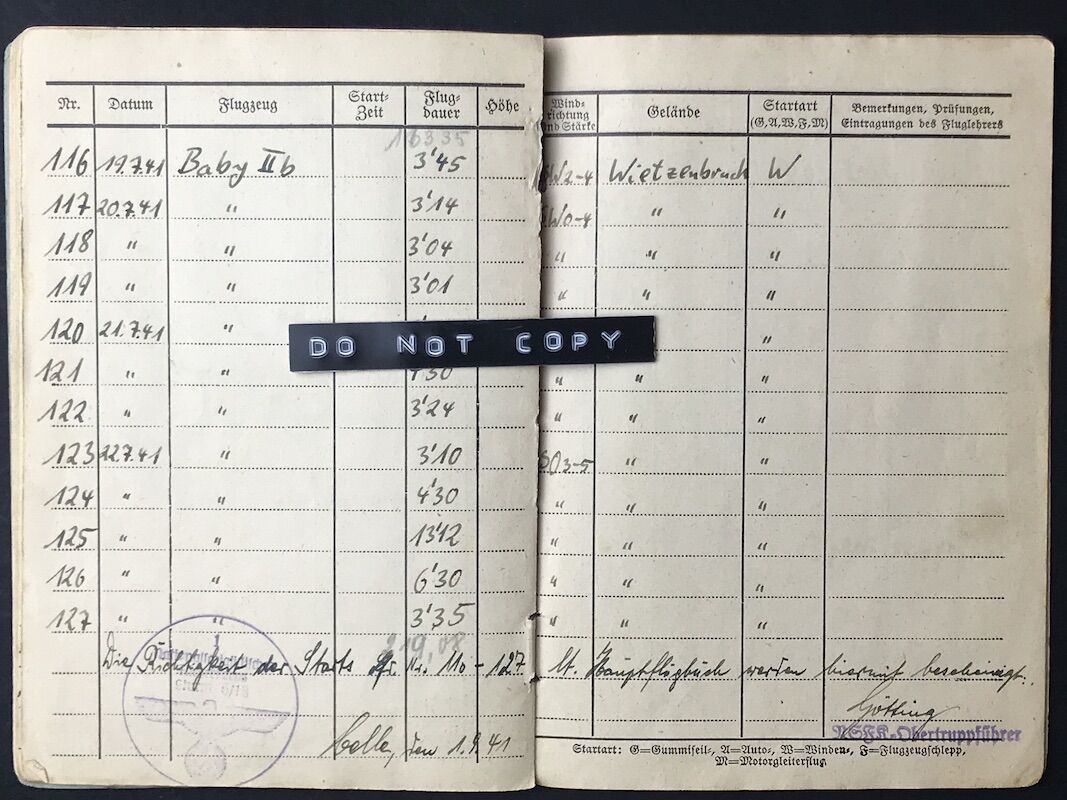 Nr. Datum Flugzeug Start-Zeit Flug-dauer Höhe Wind-richtung und Stärke Gelände Startart (G, A, W, F, M) Bemerkungen, Prüfungen, Eintragungen des Fluglehrers
16335
116 19.7.41 Baby IIb 3'45 SW2-4 Wietzenbruch W
117 20.7.41 " 3'14 SW0-4 " "
118 " " 3'04 " " "
119 " " 3'01 " " "
120 21.7.41 " "
DO NOT COPY
121 " " " " "
122 " " 3'24 " " "
123 22.7.41 " 3'10 SO3-5 " "
124 " " 4'30 " " "
125 " " 13'12 " " "
126 " " 6'30 " "
127 " " 3'35 " " "
219,08
Die Richtigkeit der Starts Nr. 110-127 lt. Hauptflugbuch werden hiermit bescheinigt.
Celle, den 1.9.41
Götting
NSFK-Obertruppführer
Startart: G=Gummiseil-, A=Auto-, W=Winden-, F=Flugzeugschlepp,
M=Motorgleiterflug